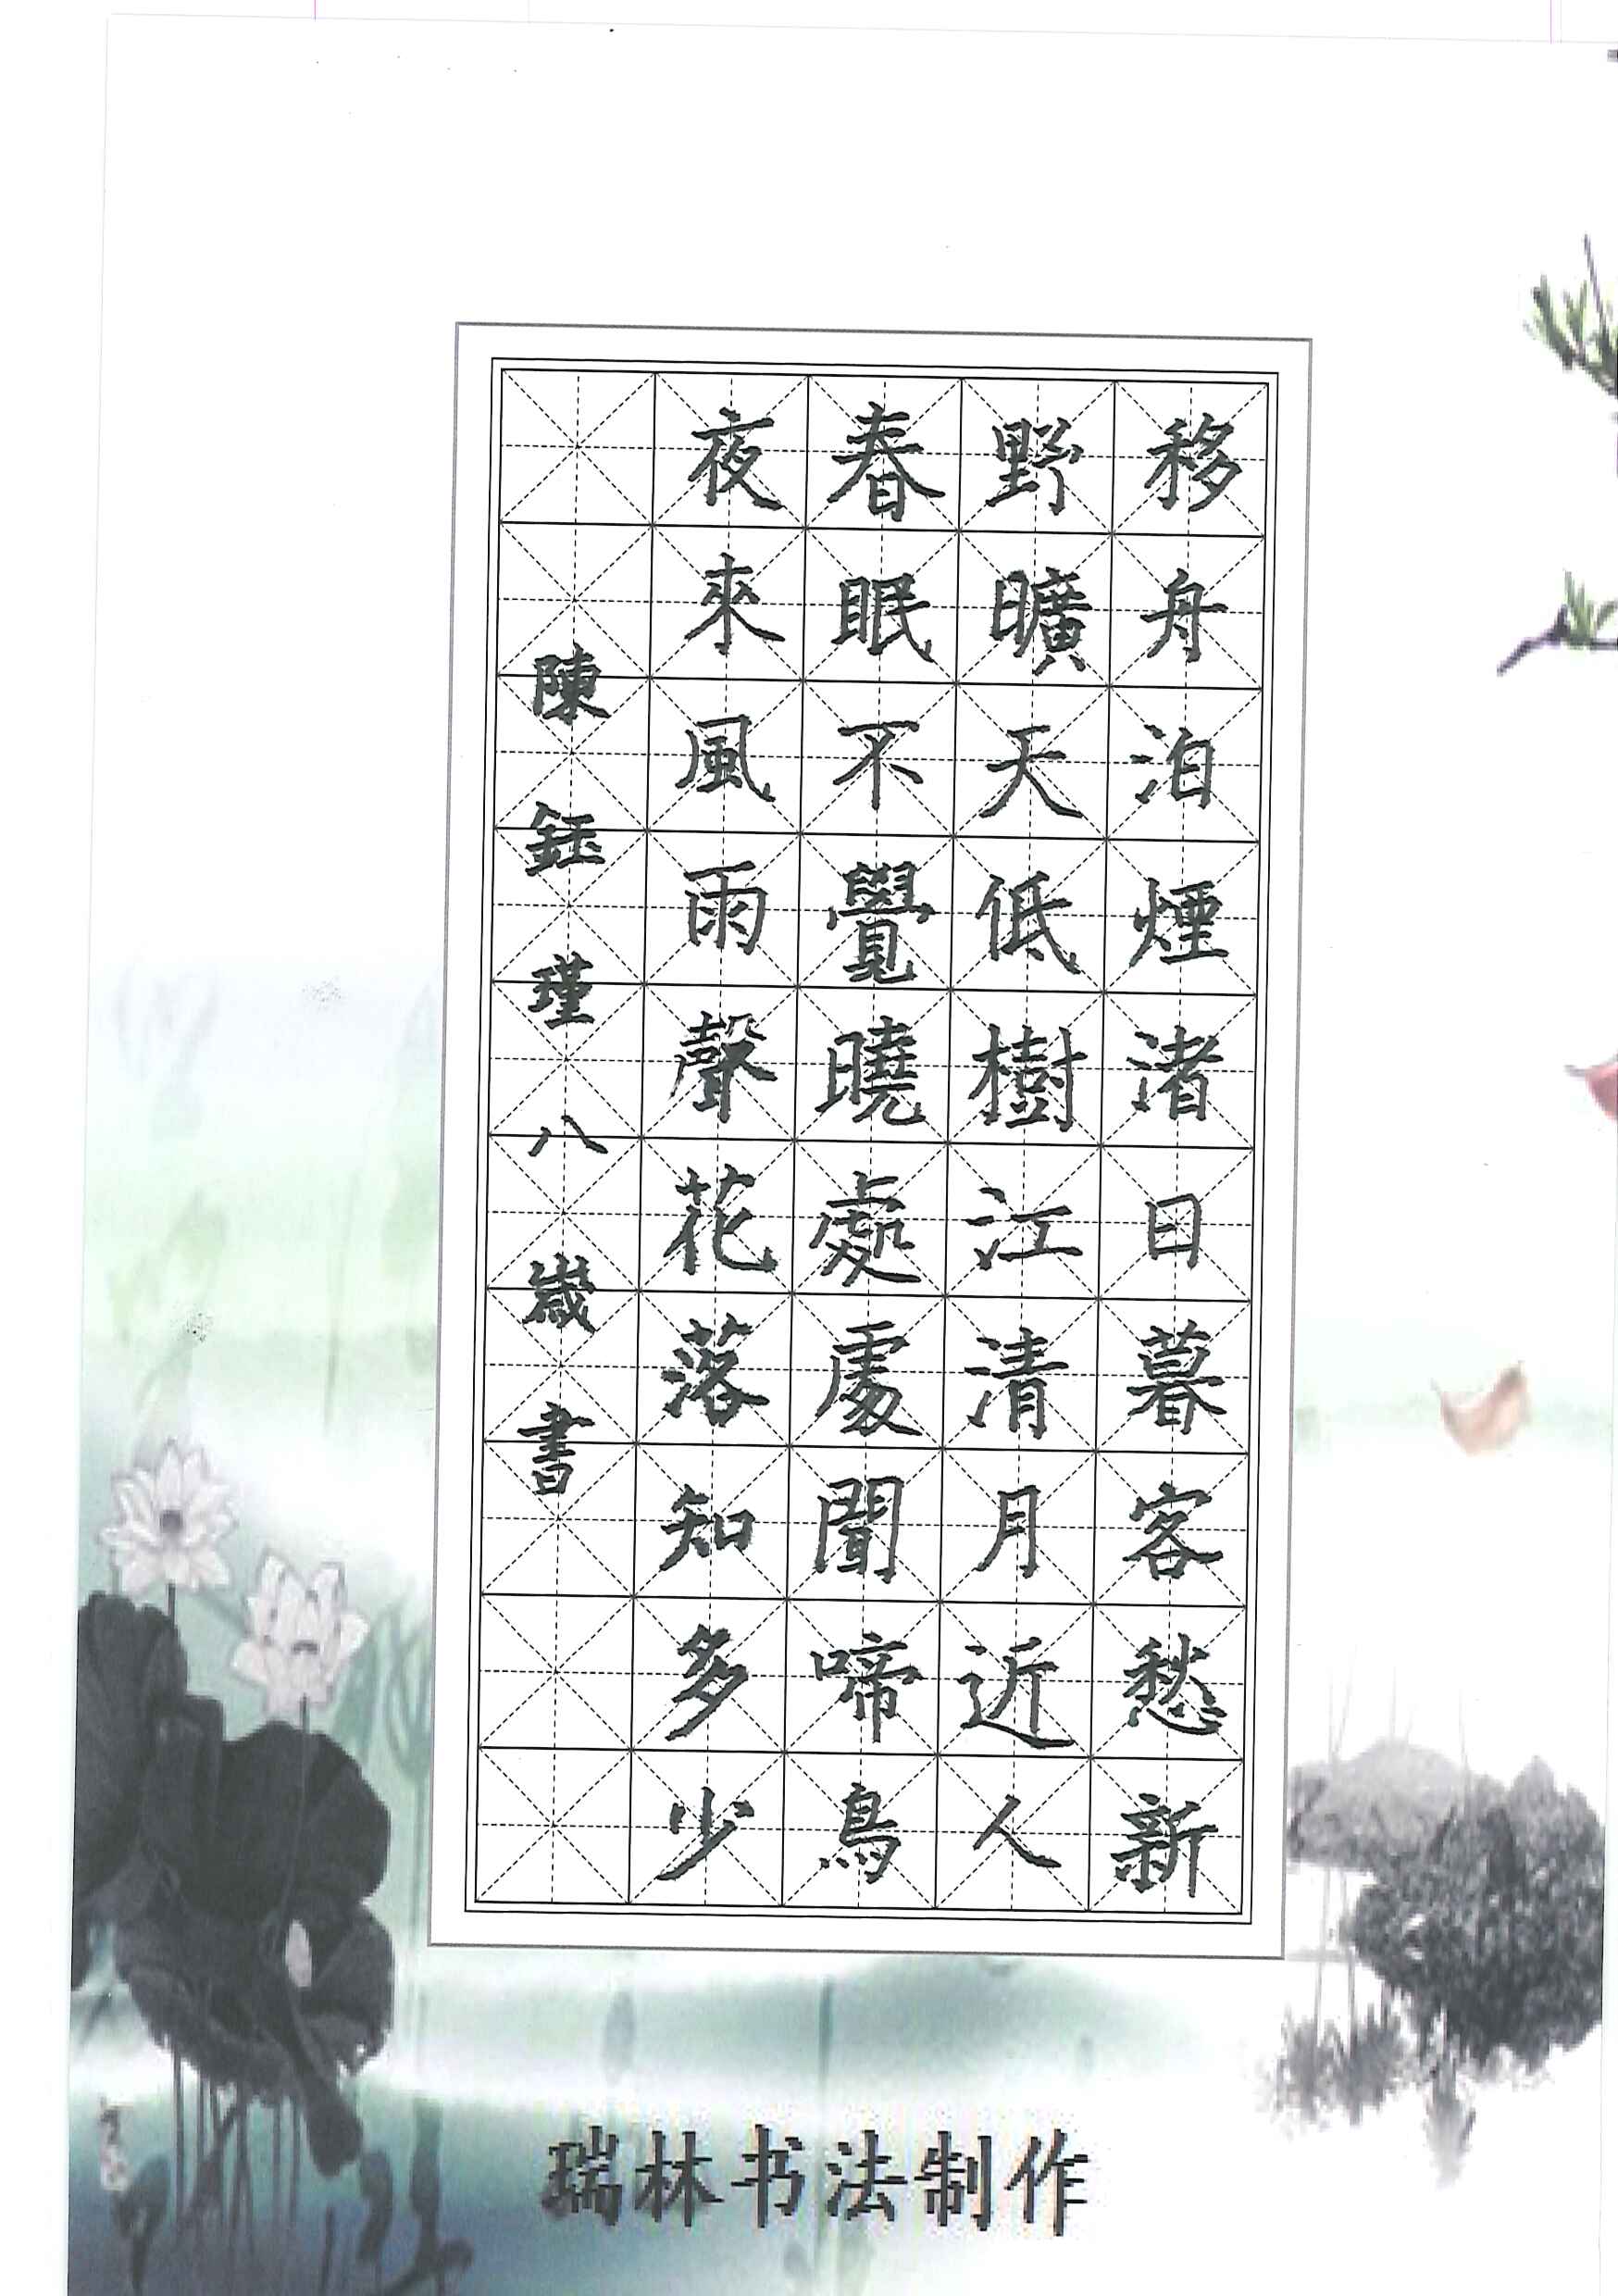 移舟泊煙渚日暮客愁新
野曠天低樹江清月近人
春眠不覺曉處處聞啼鳥
夜來風雨聲花落知多少
陳鈺瑾八歲書
瑞林书法制作